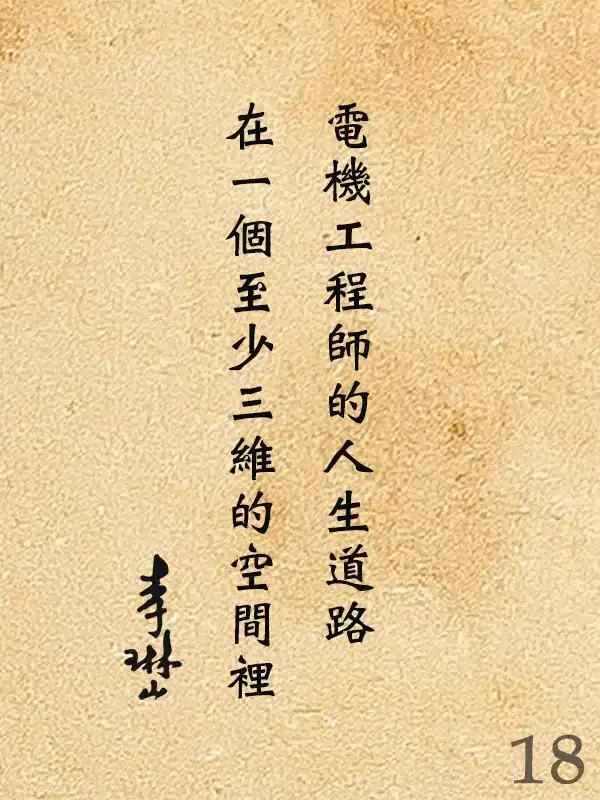 電機工程師的人生道路
在一個至少三維的空間裡
李琳山
18